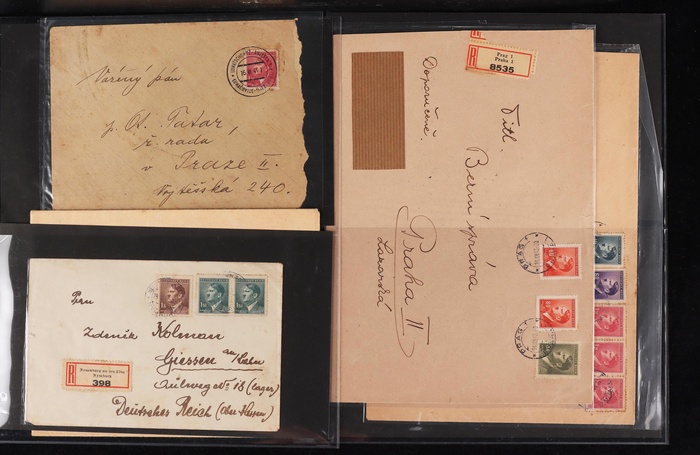 Vážený pán
p. Ot. Tatar,
ř. rada
v Praze II.
Vojtěšská 240.
R
Prag 1
Praha 1
8535
Doporučeně.
Titl.
Berní správa
Praha II
Lazarská
Pan
Zdeněk Kolman
Giessen an/Lahn
Aulweg No 18 (Lager)
Deutsches Reich (Ober Hessen)
R
Neuenburg an der Elbe
Nymburk
398